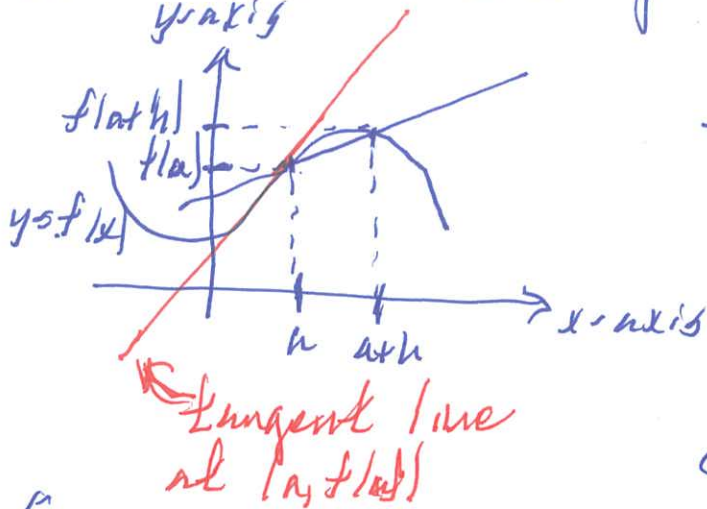 y-axis
f(a+h)
f(a)
y=f(x)
a a+h
x-axis
tangent line
at (a, f(a))